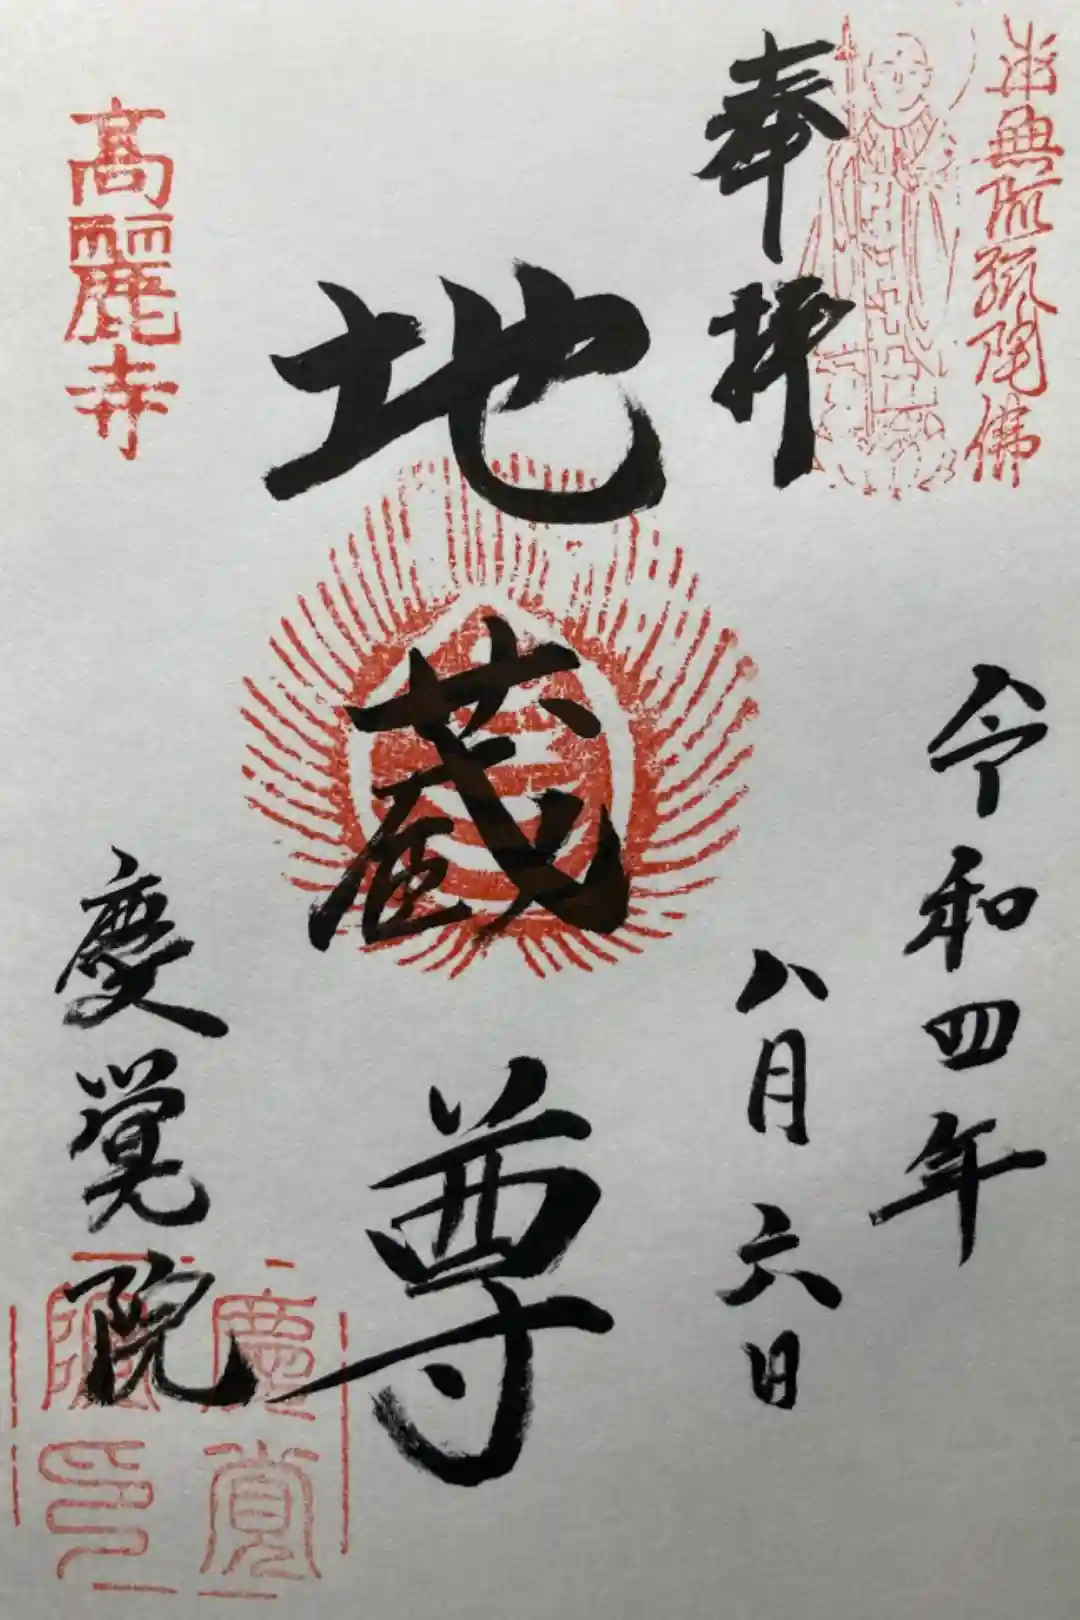 南無阿弥陀佛
奉拝
令和四年
八月六日
地蔵尊
高麗寺
慶覚院
慶覚
院印